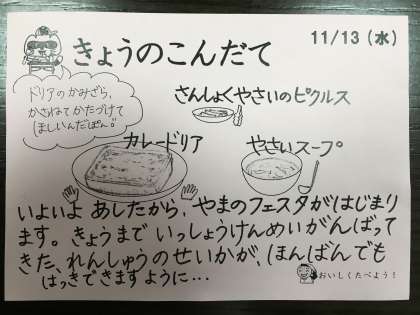 きょうのこんだて
11/13（水）
ドリアのかみざら、
かさねてかたづけて
ほしいんだぽん。
さんしょくやさいのピクルス
カレードリア
やさいスープ
いよいよ あしたから、やまのフェスタがはじまり
ます。きょうまで いっしょうけんめいがんばって
きた、れんしゅうのせいかが、ほんばんでも
はっきできますように…
おいしくたべよう！